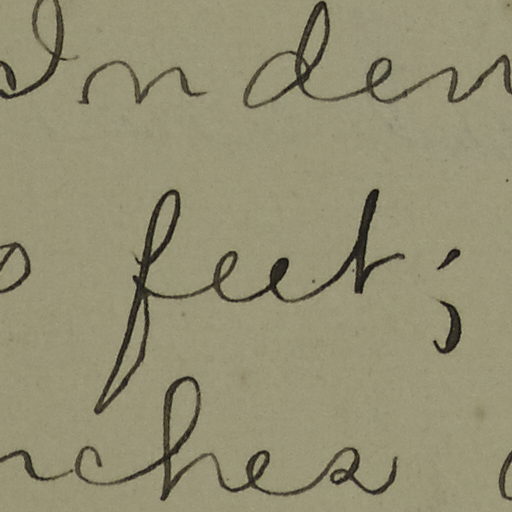 In den
o feet;
nches